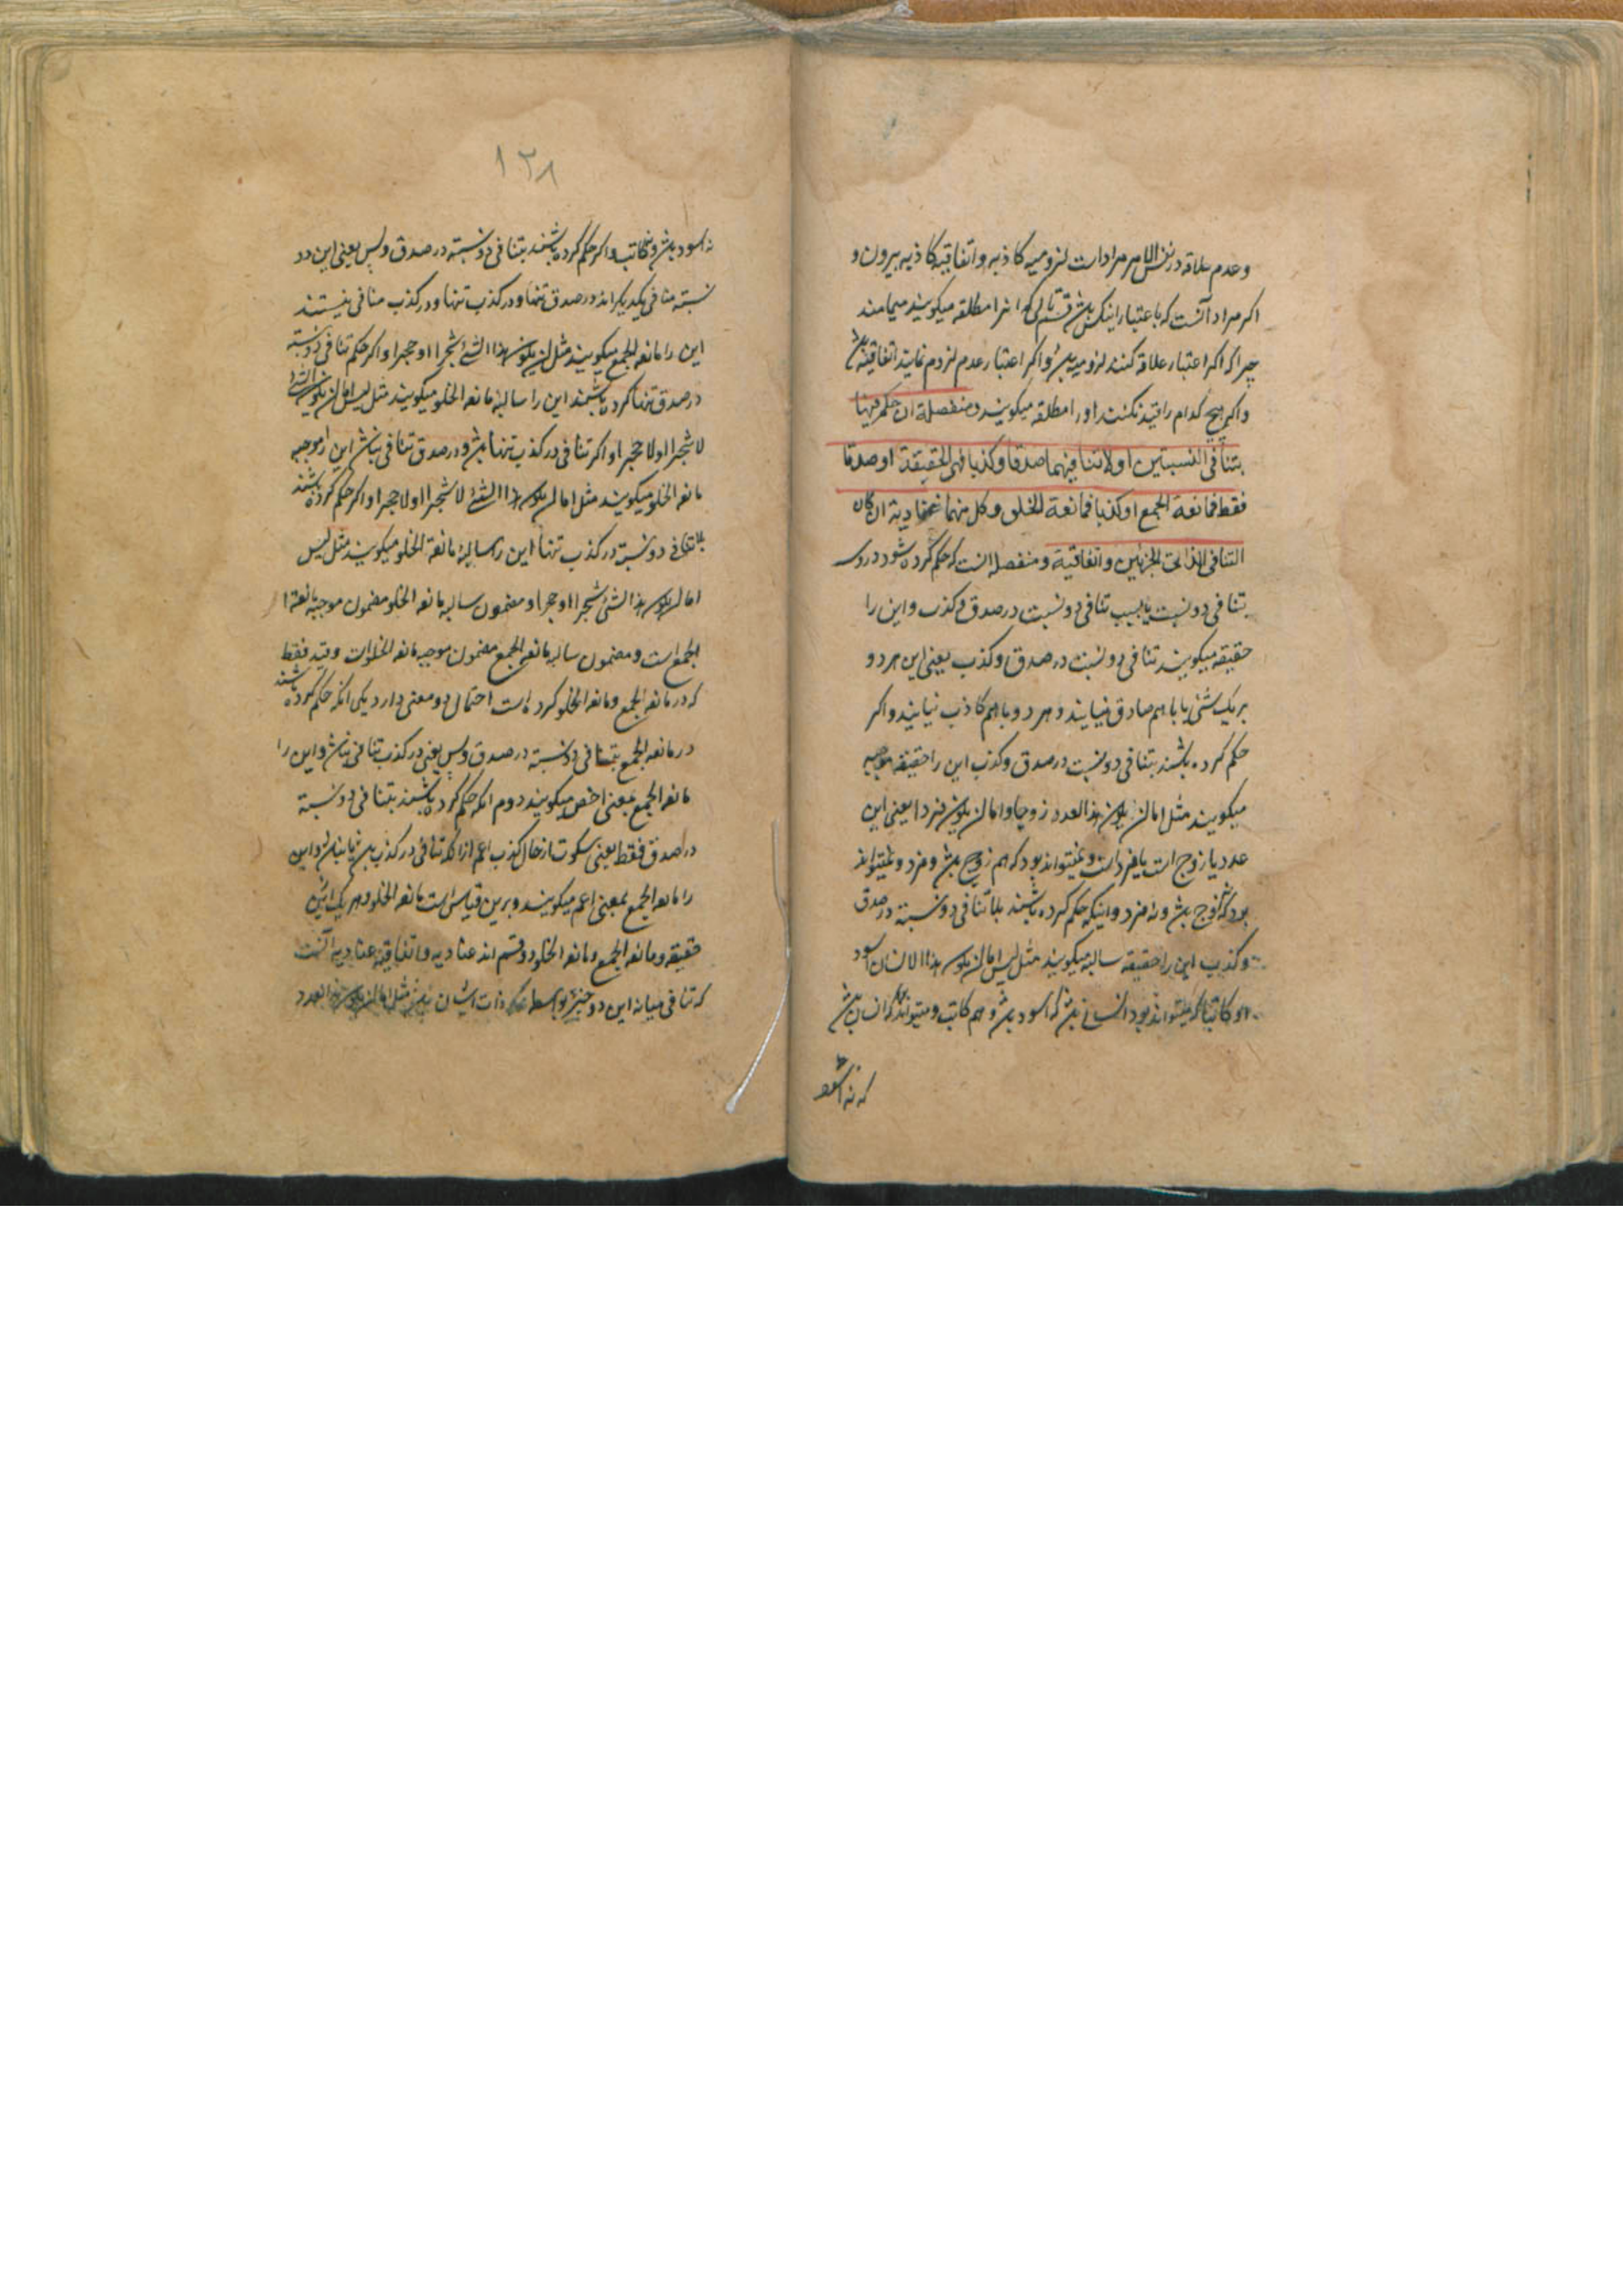 وعدم علاقه در نفس الامر مراد است لزومیه کاذبه واتفاقیه کاذبه بیرون و
اکر مراد آنست که باعتبار اینکس قسم ثالث که انرا مطلقه میکویند میماند
چرا که اکر اعتبار علاقه کنند لزومیه باشد و اکر اعتبار عدم لزوم نمایند اتفاقیه باشد
واکر هیچ کدام را قید نکنند اورا مطلقه میکویند ومنفصلة ان حکم فیها
بتنافی النسبتین او لا تنافیهما صدقا وکذبا فهی الحقیقة او صدقا
فقط فمانعة الجمع او کذبا فمانعة الخلو وکل منهما عنادیة ان کان
التنافی لذاتی الجزئین واتفاقیة ومنفصله انست که حکم کرده شود دروی
بتنافی دو نسبت یا بسلب تنافی دو نسبت در صدق وکذب واین را
حقیقه میکویند تنافی دو نسبت در صدق وکذب یعنی این هر دو
بر یک شئی با هم صادق نیایند وهر دو با هم کاذب نیایند واکر
حکم کرده باشند بتنافی دو نسبت در صدق وکذب این را حقیقه موجبه
میکویند مثل اما ان یکون هذا العدد زوجا واما ان یکون فردا یعنی این
عدد یا زوج است یا فرد است ونمیتواند بود که هم زوج باشد وفرد ونمیتواند
بود که نه زوج باشد ونه فرد واینکه حکم کرده باشند بلا تنافی دو نسبة در صدق
وکذب این را حقیقه سالبه میکویند مثل لیس اما ان یکون هذا الانسان اسود
او کاتبا که میتواند بود انسانی باشد که اسود باشد وهم کاتب ومیتواند بود که انسان باشد
که نه اسود
۱۲۸
نه اسود باشد ونه کاتب واکر حکم کرده باشند بتنافی دو نسبة در صدق وبس یعنی این دو
نسبة منافی یکدیکراند در صدق تنها ودر کذب تنها ودر کذب منافی نیستند
این را مانعه الجمع میکویند مثل ان یکون هذا الشئ شجرا او حجرا واکر حکم تنافی دو نسبة
در صدق تنها کرده باشند این را سالبه مانعه الخلو میکویند مثل لیس اما ان یکون هذا الشئ
لا شجرا او لا حجرا واکر تنافی در کذب تنها باشد ودر صدق تنافی نباشد این را موجبه
مانعه الخلو میکویند مثل اما ان یکون هذا الشئ لا شجرا او لا حجرا واکر حکم کرده باشند
بلا تنافی دو نسبة در کذب تنها این را سالبه مانعة الخلو میکویند مثل لیس
اما ان یکون هذا الشئ شجرا او حجرا ومضمون سالبه مانعه الخلو مضمون موجبه مانعة ا
الجمع است ومضمون سالبه مانعه الجمع مضمون موجبه مانعه الخلو است وقید فقط
که در مانعه الجمع ومانعه الخلو کرده است احتمال دو معنی دارد یکی انکه حکم کرده باشند
در مانعه الجمع بتنافی دو نسبة در صدق وبس یعنی در کذب تنافی نباشد واین را
مانعه الجمع بمعنی اخص میکویند دوم انکه حکم کرده باشند بتنافی دو نسبة
در صدق فقط یعنی سکوت از حال کذب اعم از انکه تنافی در کذب باشد یا نباشد واین
را مانعه الجمع بمعنی اعم میکویند وبرین قیاس است مانعه الخلو وهر یک ازین
حقیقه ومانعه الجمع ومانعه الخلو دو قسم اند عنادیه واتفاقیه عنادیه آنست
که تنافی میانه این دو جزء بواسطه ذات ایشان باشد مثل اما ان یکون هذا العدد